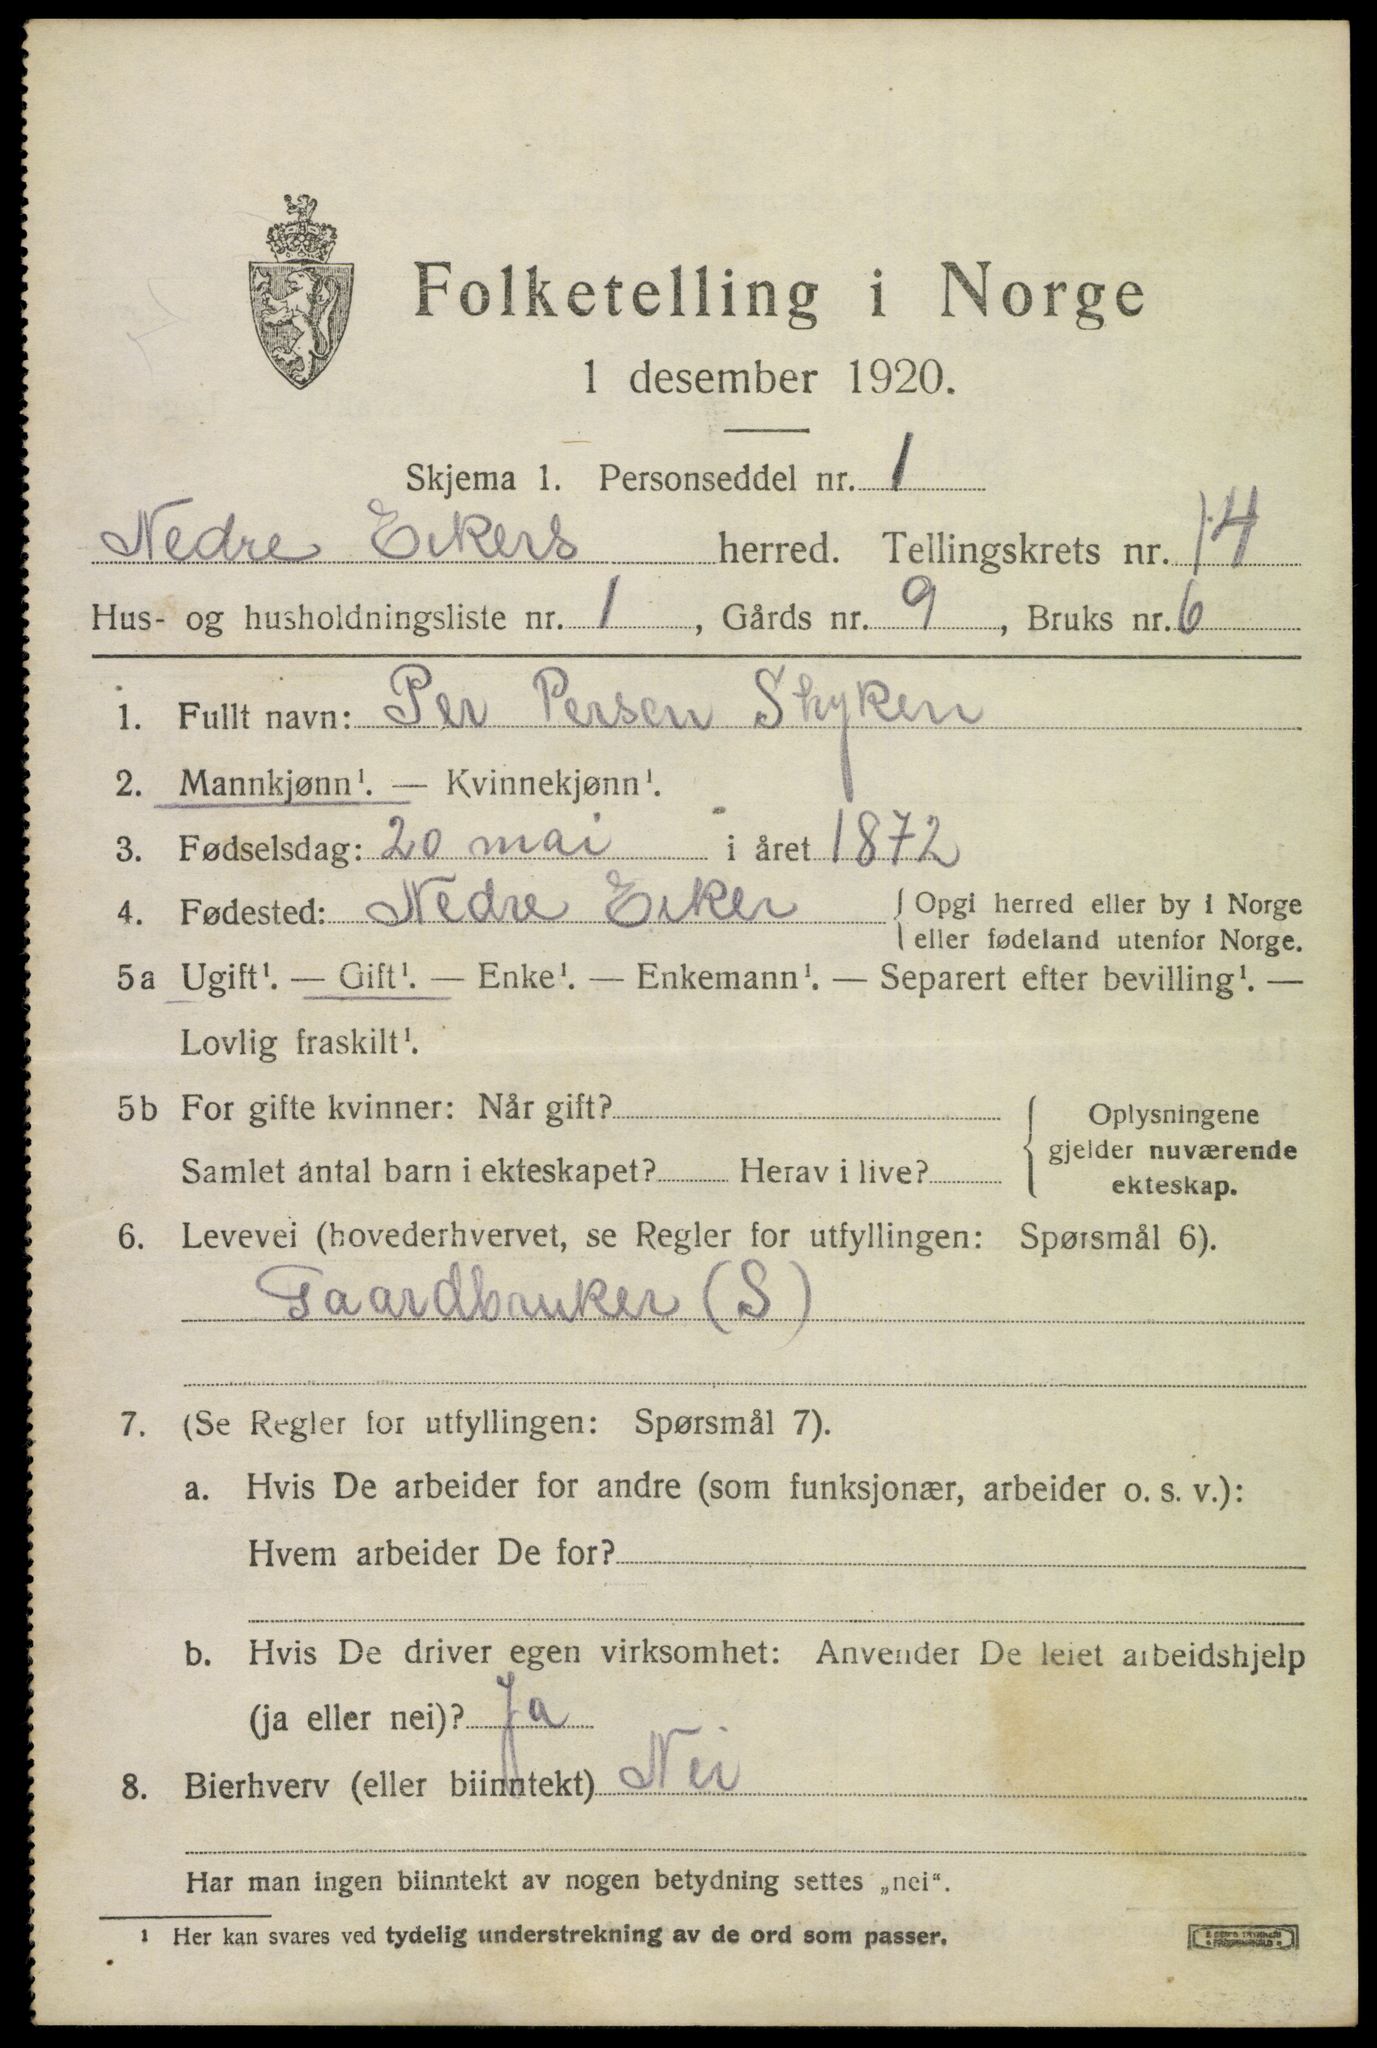 Folketelling i Norge
1 desember 1920.
Skjema 1. Personseddel nr. 1
Nedre Eikers herred. Tellingskrets nr. 14
Hus- og husholdningsliste nr. 1, Gårds nr. 9, Bruks nr. 6
1. Fullt navn: Per Persen Stryken
2. Mannkjønn¹. — Kvinnekjønn¹.
3. Fødselsdag: 20 mai i året 1872
4. Fødested: Nedre Eiker { Opgi herred eller by i Norge
eller fødeland utenfor Norge.
5a Ugift¹. — Gift¹. — Enke¹. — Enkemann¹. — Separert efter bevilling¹. —
Lovlig fraskilt¹.
5b For gifte kvinner: Når gift?
Samlet antal barn i ekteskapet? Herav i live?
{ Oplysningene
gjelder nuværende
ekteskap.
6. Levevei (hovederhvervet, se Regler for utfyllingen: Spørsmål 6).
Gaardbruker (S)
7. (Se Regler for utfyllingen: Spørsmål 7).
a. Hvis De arbeider for andre (som funksjonær, arbeider o. s. v.):
Hvem arbeider De for?
b. Hvis De driver egen virksomhet: Anvender De leiet arbeidshjelp
(ja eller nei)? Ja
8. Bierhverv (eller biinntekt) Nei
Har man ingen biinntekt av nogen betydning settes „nei“.
¹ Her kan svares ved tydelig understrekning av de ord som passer.